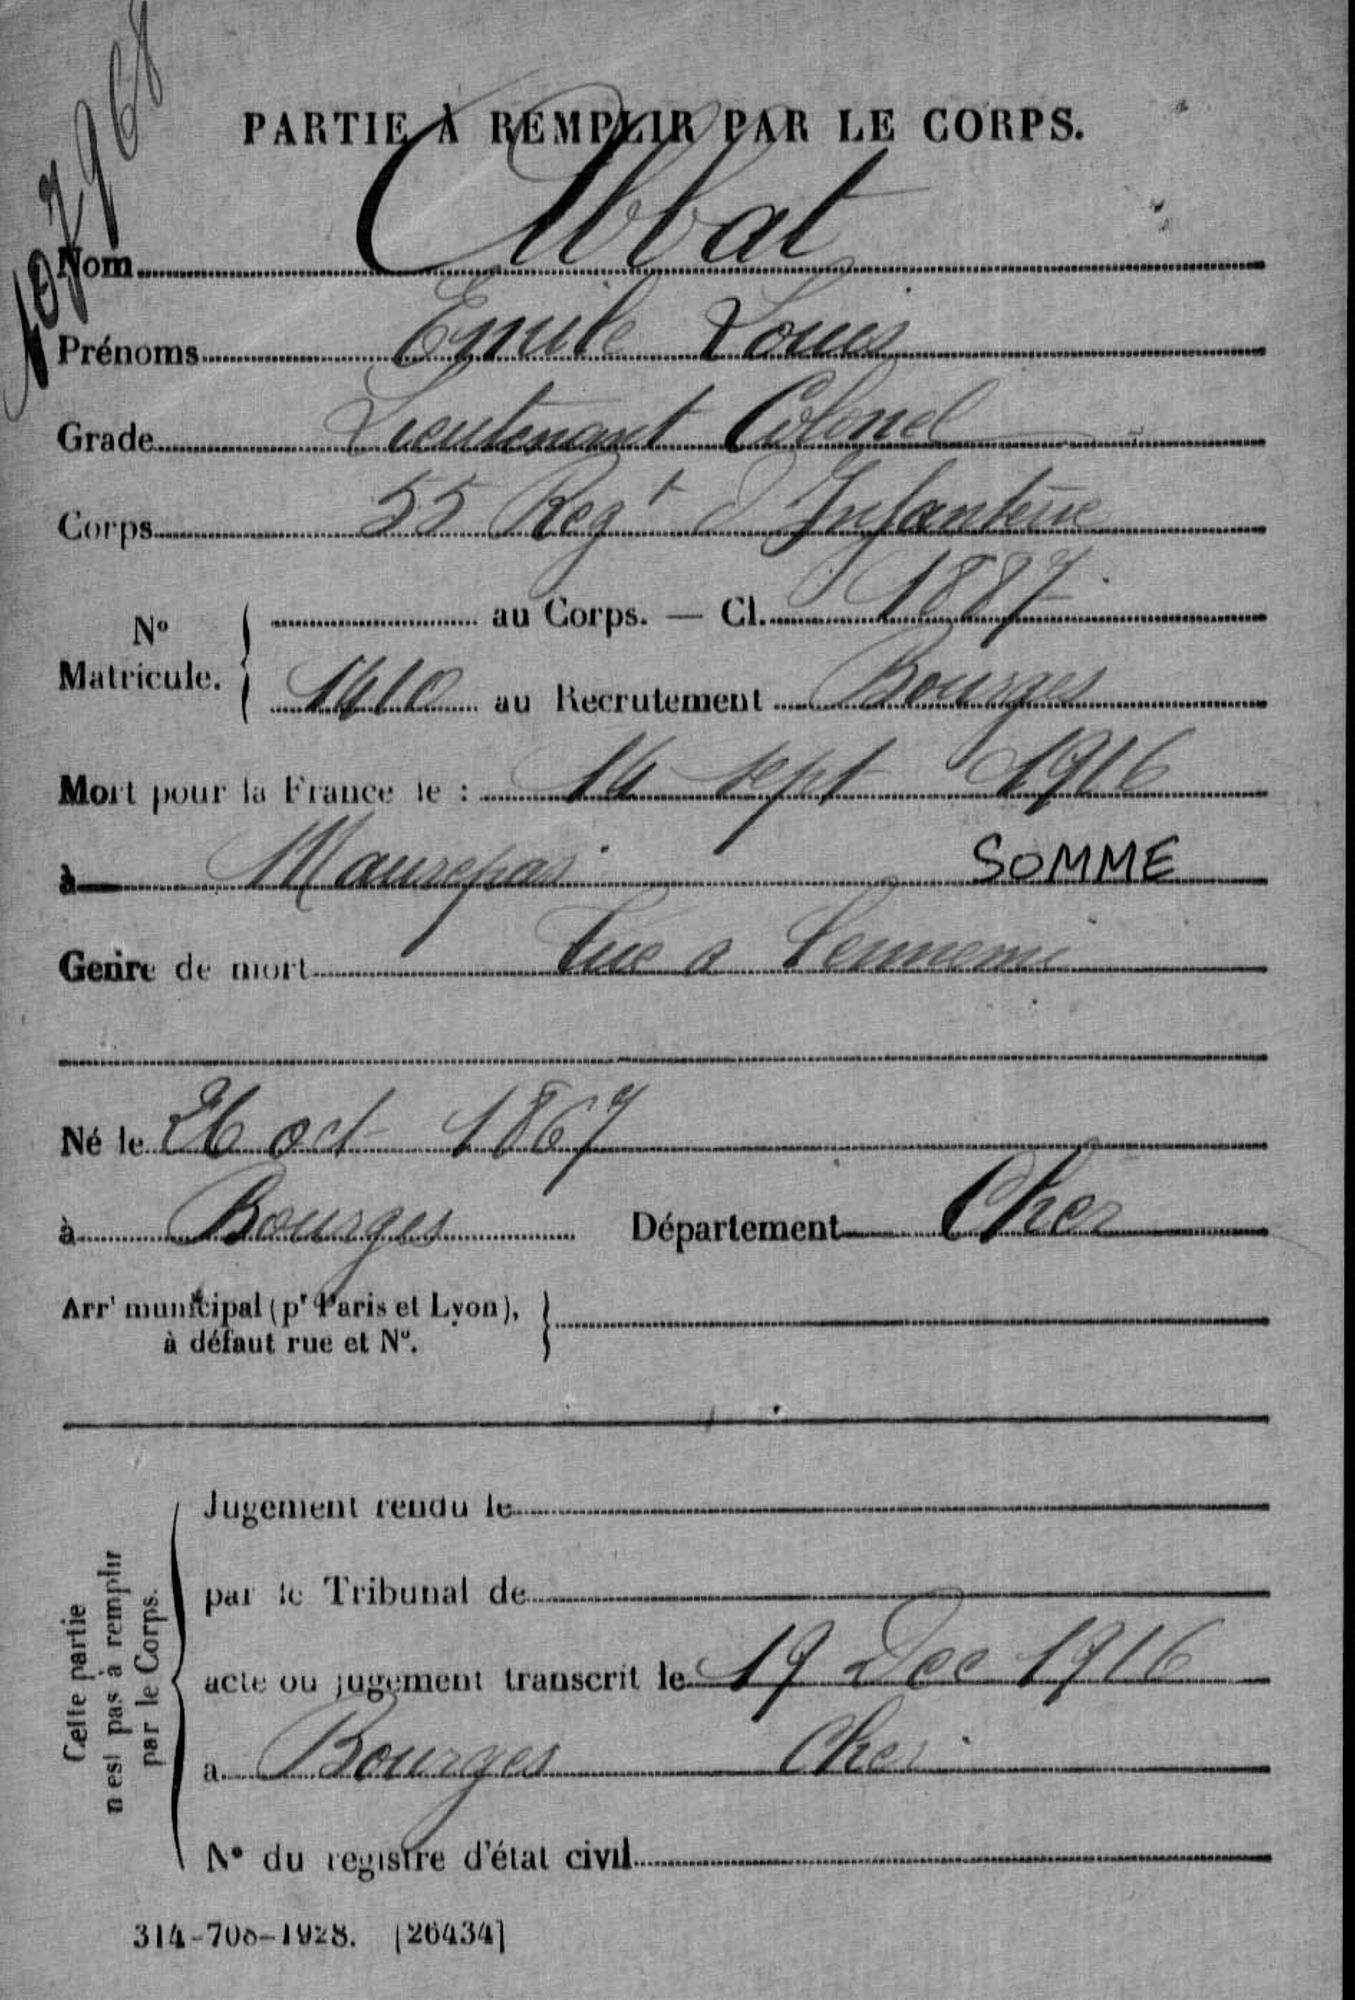 107968
PARTIE À REMPLIR PAR LE CORPS.
Nom Abbat
Prénoms Emile Louis
Grade Lieutenant Colonel
Corps 55 Regt d'Infanterie
No Matricule. au Corps. — Cl. 1887
1410 au Recrutement Bourges
Mort pour la France le : 14 sept 1916
à Maurepas SOMME
Genre de mort Tué a l'ennemi
Né le 26 oct 1867
à Bourges Département Cher
Arrt municipal (pr Paris et Lyon),
à défaut rue et No.
Cette partie
n'est pas à remplir
par le Corps.
Jugement rendu le
par le Tribunal de
acte ou jugement transcrit le 19 Dec 1916
a Bourges Cher
No du registre d'état civil
314-708-1928. [26434]